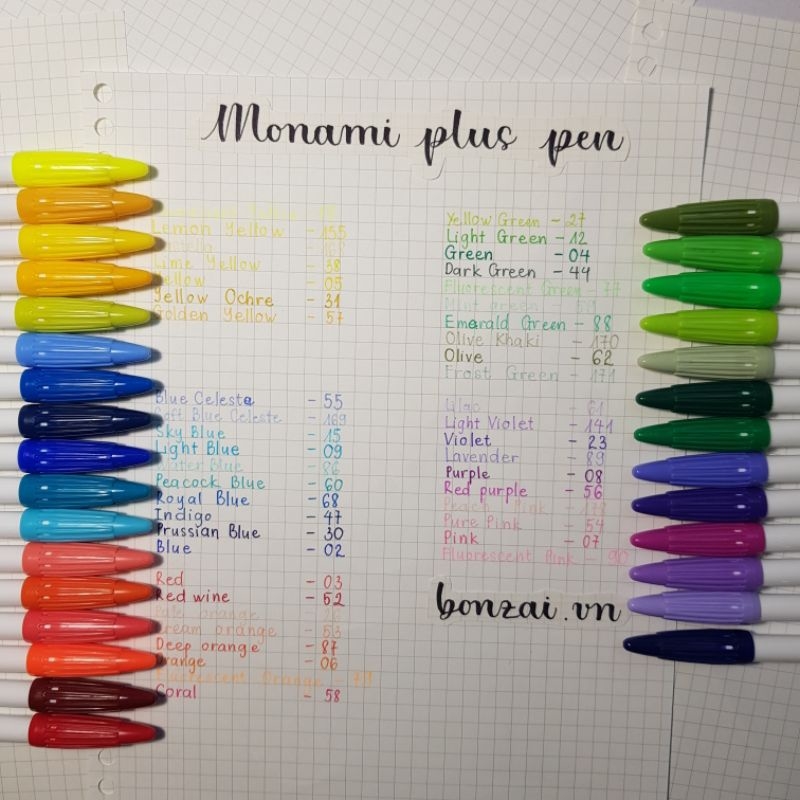 Monami plus pen
Lemon Yellow - 155
Lime Yellow - 38
Yellow - 05
Yellow Ochre - 31
Golden Yellow - 57
Blue Celeste - 55
Soft Blue Celeste - 169
Sky Blue - 15
Light Blue - 09
Water Blue - 86
Peacock Blue - 60
Royal Blue - 68
Indigo - 47
Prussian Blue - 30
Blue - 02
Red - 03
Red wine - 52
Pale orange
Cream orange - 53
Deep orange - 87
Orange - 06
Fluorescent Orange - 79
Coral - 58
Yellow Green - 27
Light Green - 12
Green - 04
Dark Green - 44
Fluorescent Green - 77
Mint green
Emerald Green - 88
Olive Khaki - 170
Olive - 62
Frost Green - 171
Lilac - 61
Light Violet - 141
Violet - 23
Lavender - 89
Purple - 08
Red purple - 56
Peach Pink
Pure Pink - 54
Pink - 07
Fluorescent Pink - 90
bonzai.vn